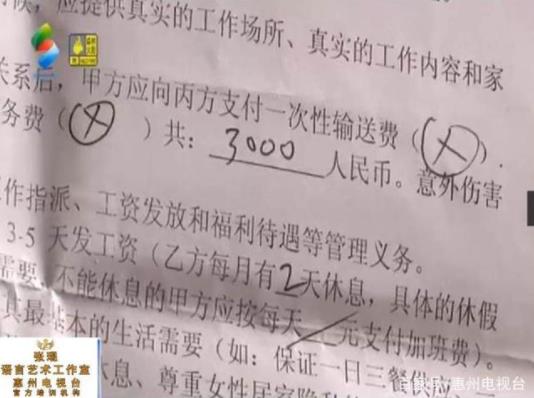 应提供真实的工作场所、真实的工作内容和家
关系后，甲方应向丙方支付一次性输送费（X）.
务费（X）共：3000人民币。意外伤害
作指派、工资发放和福利待遇等管理义务。
3-5 天发工资（乙方每月有2天休息，具体的休假
需要，不能休息的甲方应按每天／元支付加班费）。
其最基本的生活需要（如：保证一日三餐供
休息、尊重女性居家隐
张瑾
语言艺术工作室
惠州电视台
官方培训机构
百家号/惠州电视台